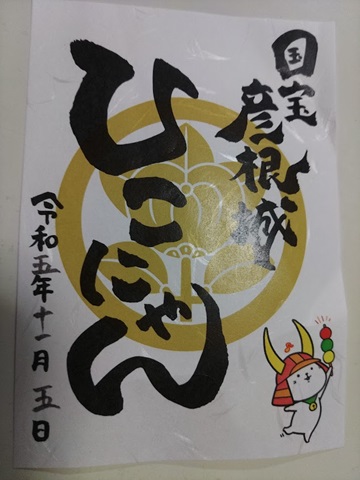 国宝
彦根城
ひこにゃん
令和五年十一月五日